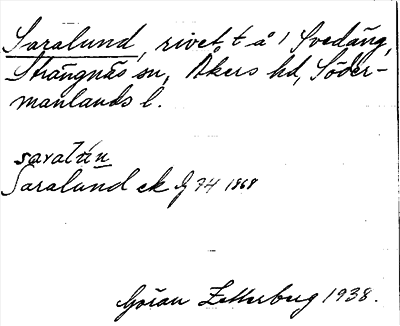 Saralund, rivet t å 1 Svedäng,
Strängnäs sn, Åkers hd, Söder-
manlands l.
saralún
Saralund ek G 74 1868
Göran Zetterberg 1938.